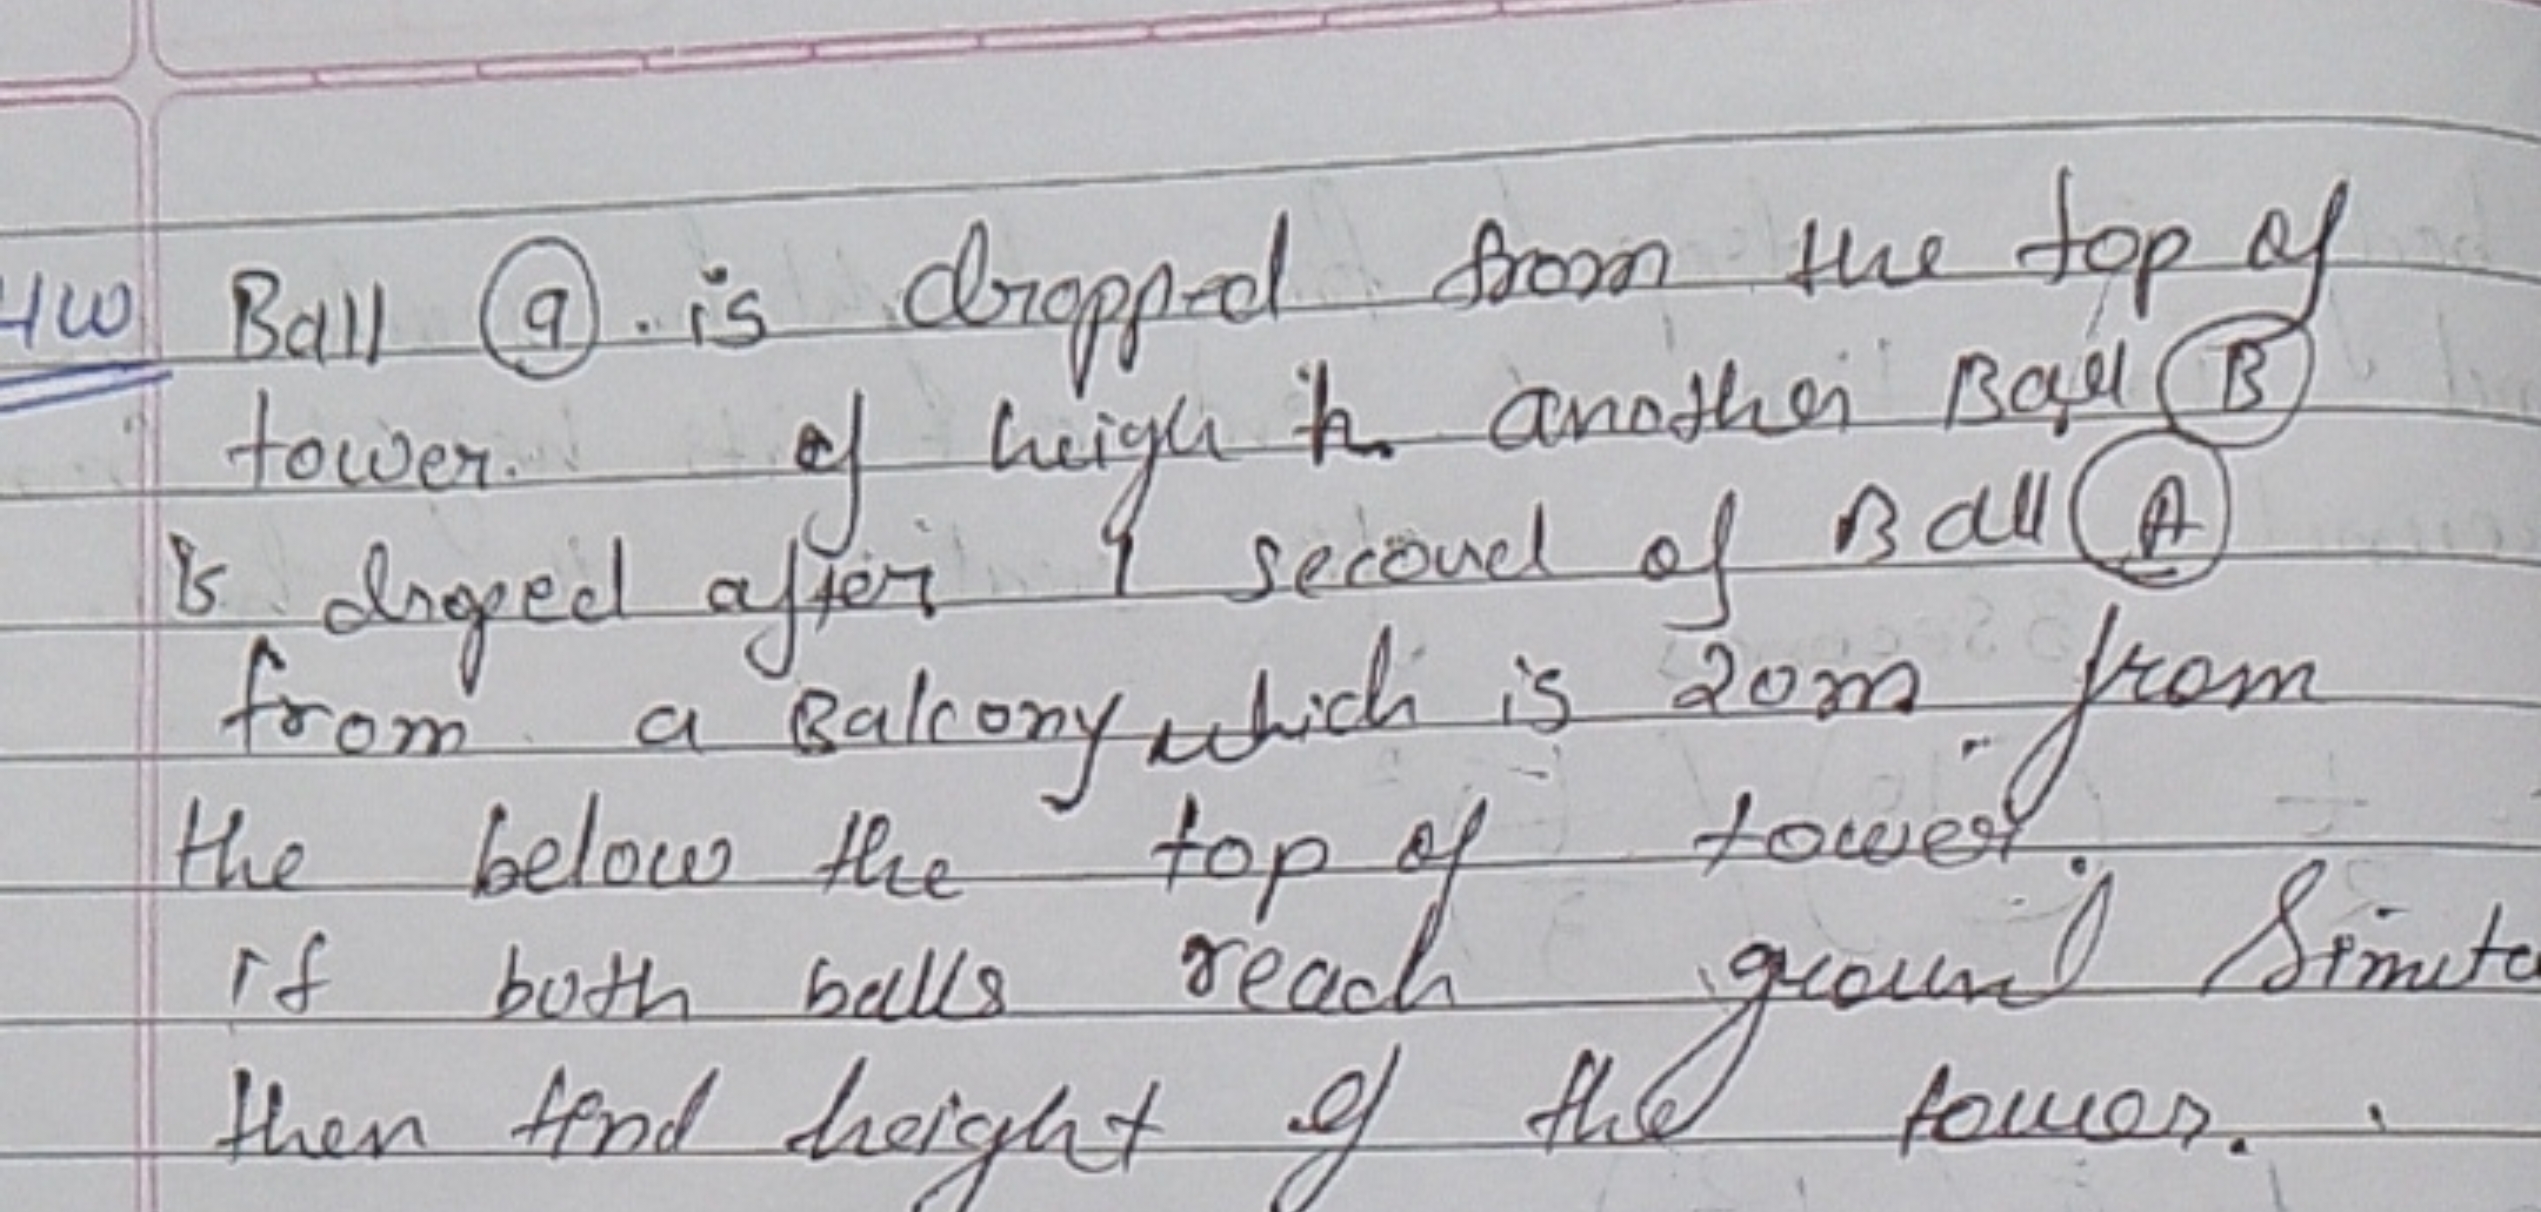 HW Ball (a). is dropped from the top of
tower. of heigh h. another Ball (B)
is droped after 1 second of Ball (A)
from a Balcony which is 20m from
the below the top of tower.
if both balls reach ground
then find height of the tower.